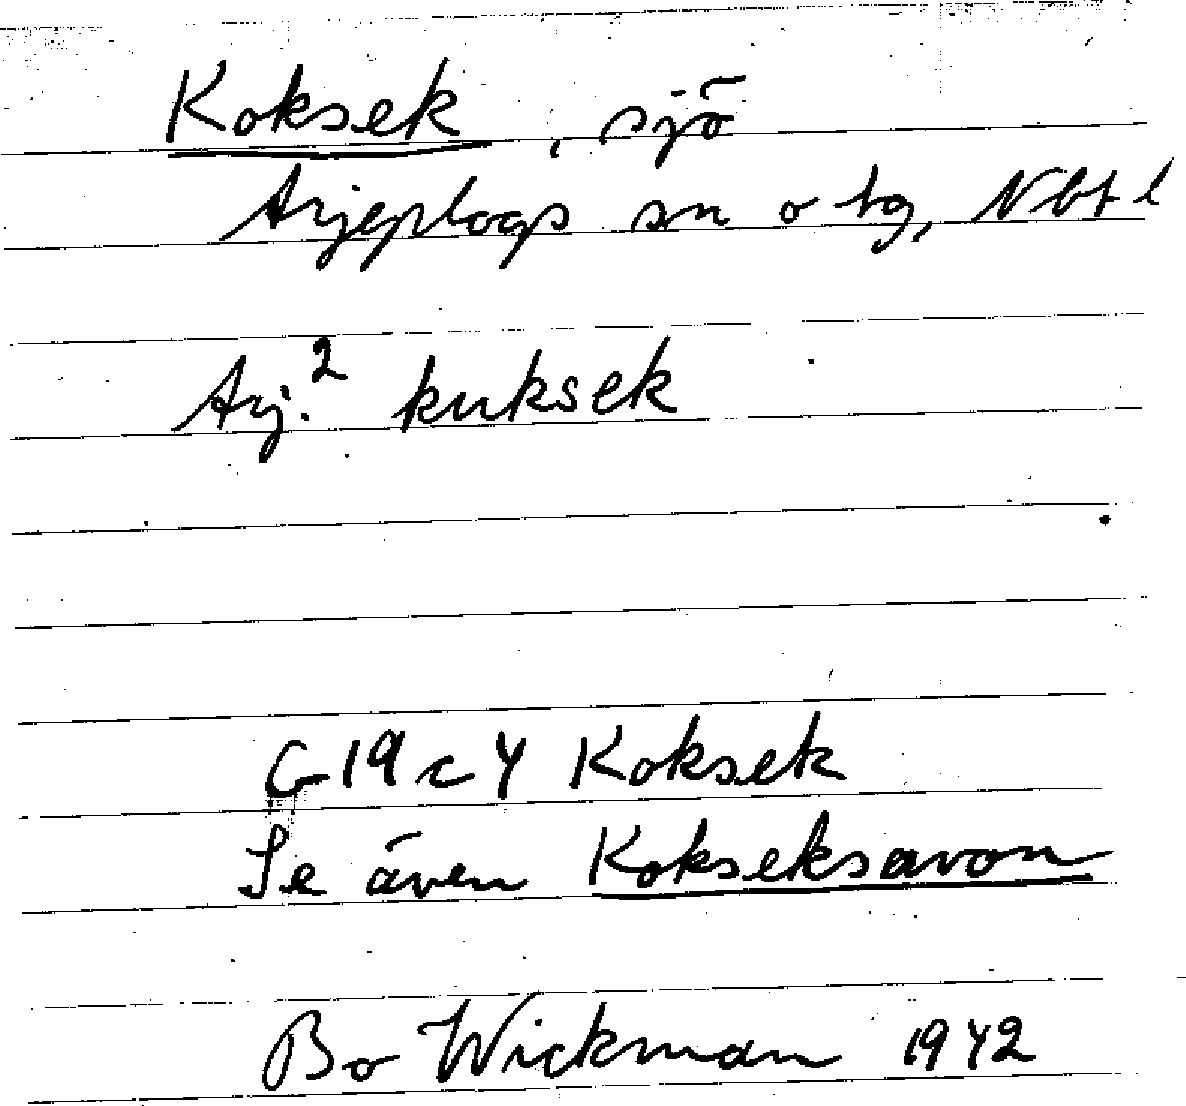 Koksek, sjö
Arjeplogs sn o tg, Nbt l
Arj.² kuksek
G 19 c 4 Koksek
Se även Kokseksavon
Bo Wickman 1942